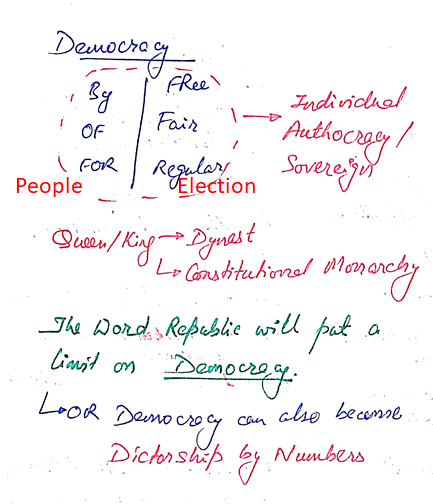 Democracy
By | FRee
OF | Fair
FOR | Regular
People Election
→ Individual
Authocracy /
Sovereign
Queen/King → Dynast
↳ Constitutional Monarchy
The Word Republic will put a
limit on Democracy.
↳ OR Democracy can also become
Dictorship by Numbers